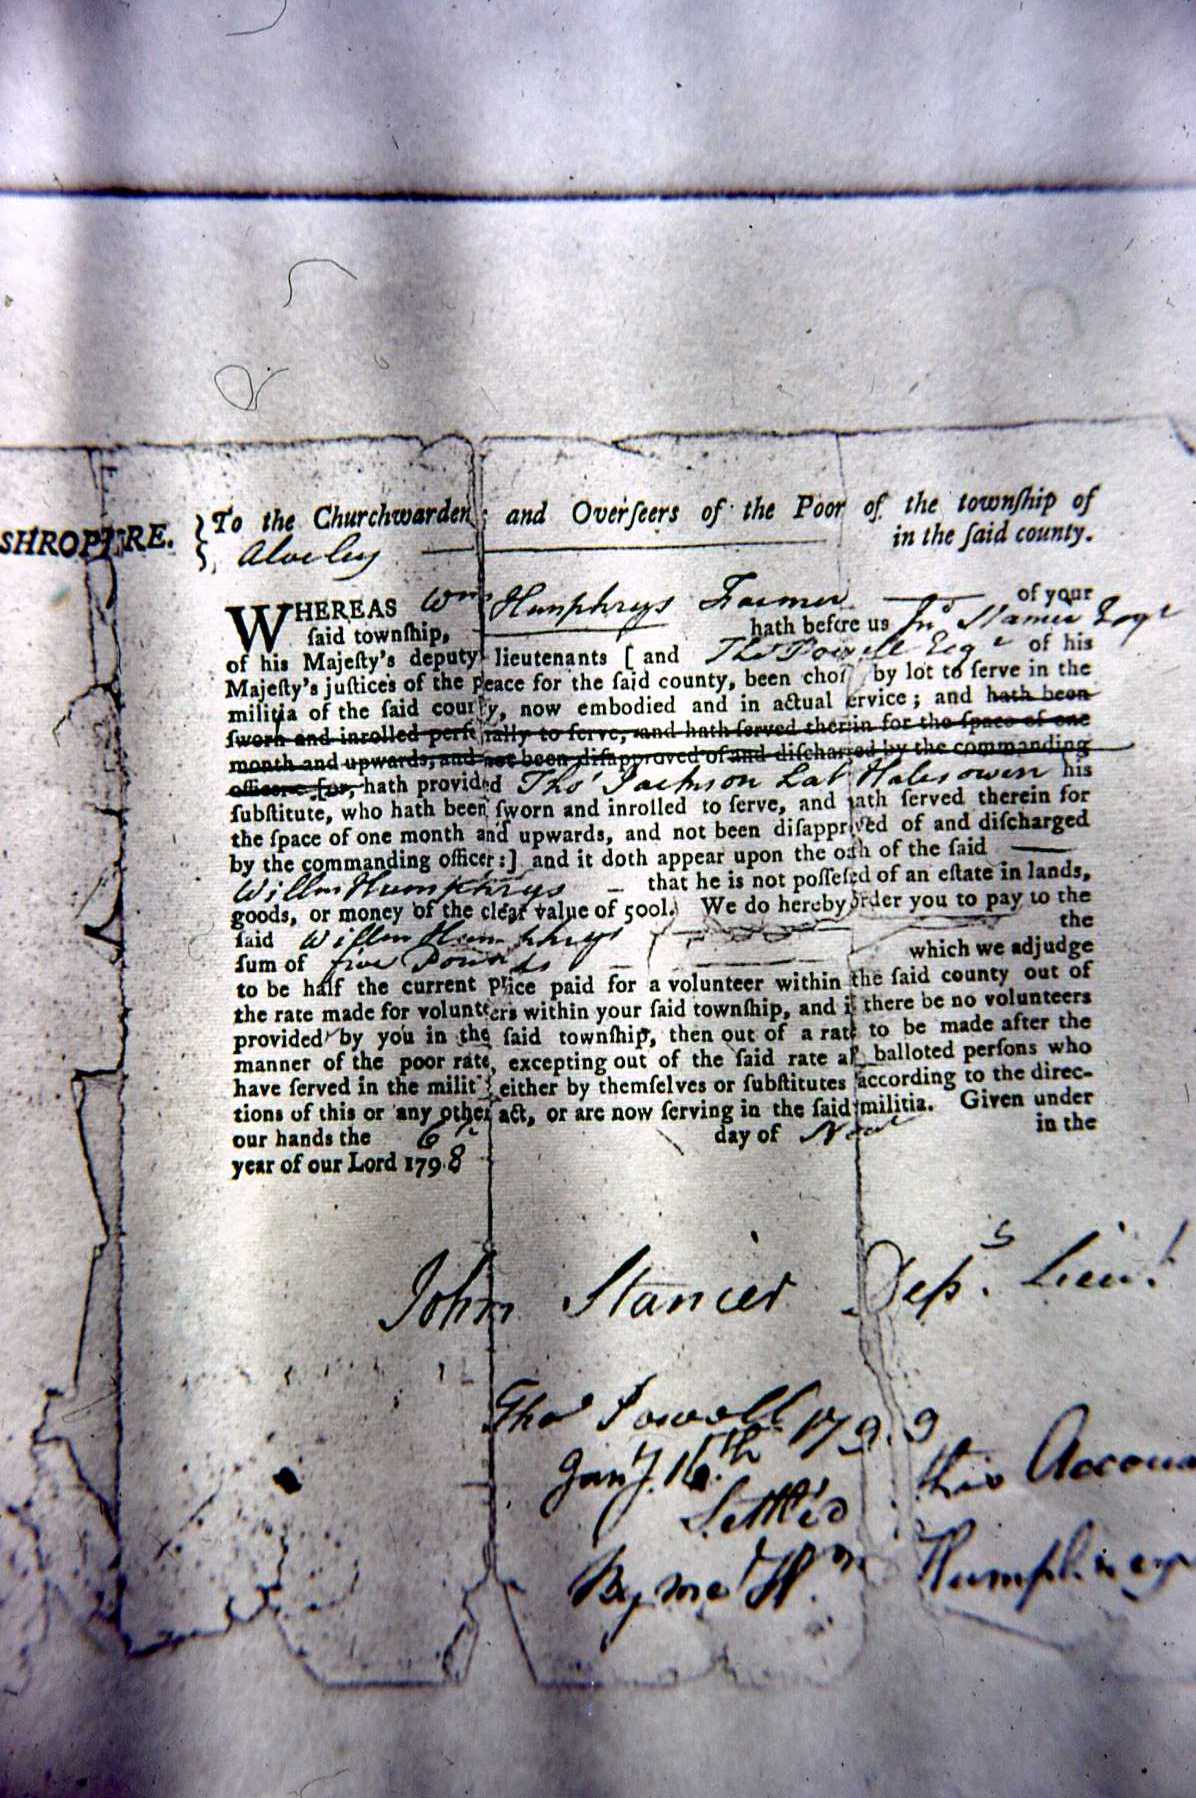 SHROPSHIRE. } To the Churchwardens and Overſeers of the Poor of the townſhip of
Alveley in the ſaid county.
WHEREAS Wm Humphrys Farmer of your
ſaid townſhip, hath before us Jno Stanier Esqr
of his Majeſty's deputy lieutenants [ and Thos Powell Esqr of his
Majeſty's juſtices of the peace for the ſaid county, been choſ by lot to ſerve in the
militia of the ſaid county, now embodied and in actual ſervice; and hath been
ſworn and inrolled perſonally to ſerve, and hath ſerved therein for the ſpace of one
month and upwards, and not been diſapproved of and diſcharged by the commanding
officer: [or, hath provided Thos Jackson Lab Halesowen his
ſubſtitute, who hath been ſworn and inrolled to ſerve, and hath ſerved therein for
the ſpace of one month and upwards, and not been diſapproved of and diſcharged
by the commanding officer:] and it doth appear upon the oath of the ſaid
Willm Humphrys that he is not poſſeſed of an eſtate in lands,
goods, or money of the clear value of 500l. We do hereby order you to pay to the
ſaid Willm Humphrys the
ſum of five Pounds which we adjudge
to be half the current price paid for a volunteer within the ſaid county out of
the rate made for volunteers within your ſaid townſhip, and if there be no volunteers
provided by you in the ſaid townſhip, then out of a rate to be made after the
manner of the poor rate, excepting out of the ſaid rate all balloted perſons who
have ſerved in the militia either by themſelves or ſubſtitutes according to the direc-
tions of this or any other act, or are now ſerving in the ſaid militia. Given under
our hands the 6th day of Novr in the
year of our Lord 1798
John Stanier Depy Lieut
Thos Powell
Jany 16th 1799
Settled this Accou
By me Wm Humphreys